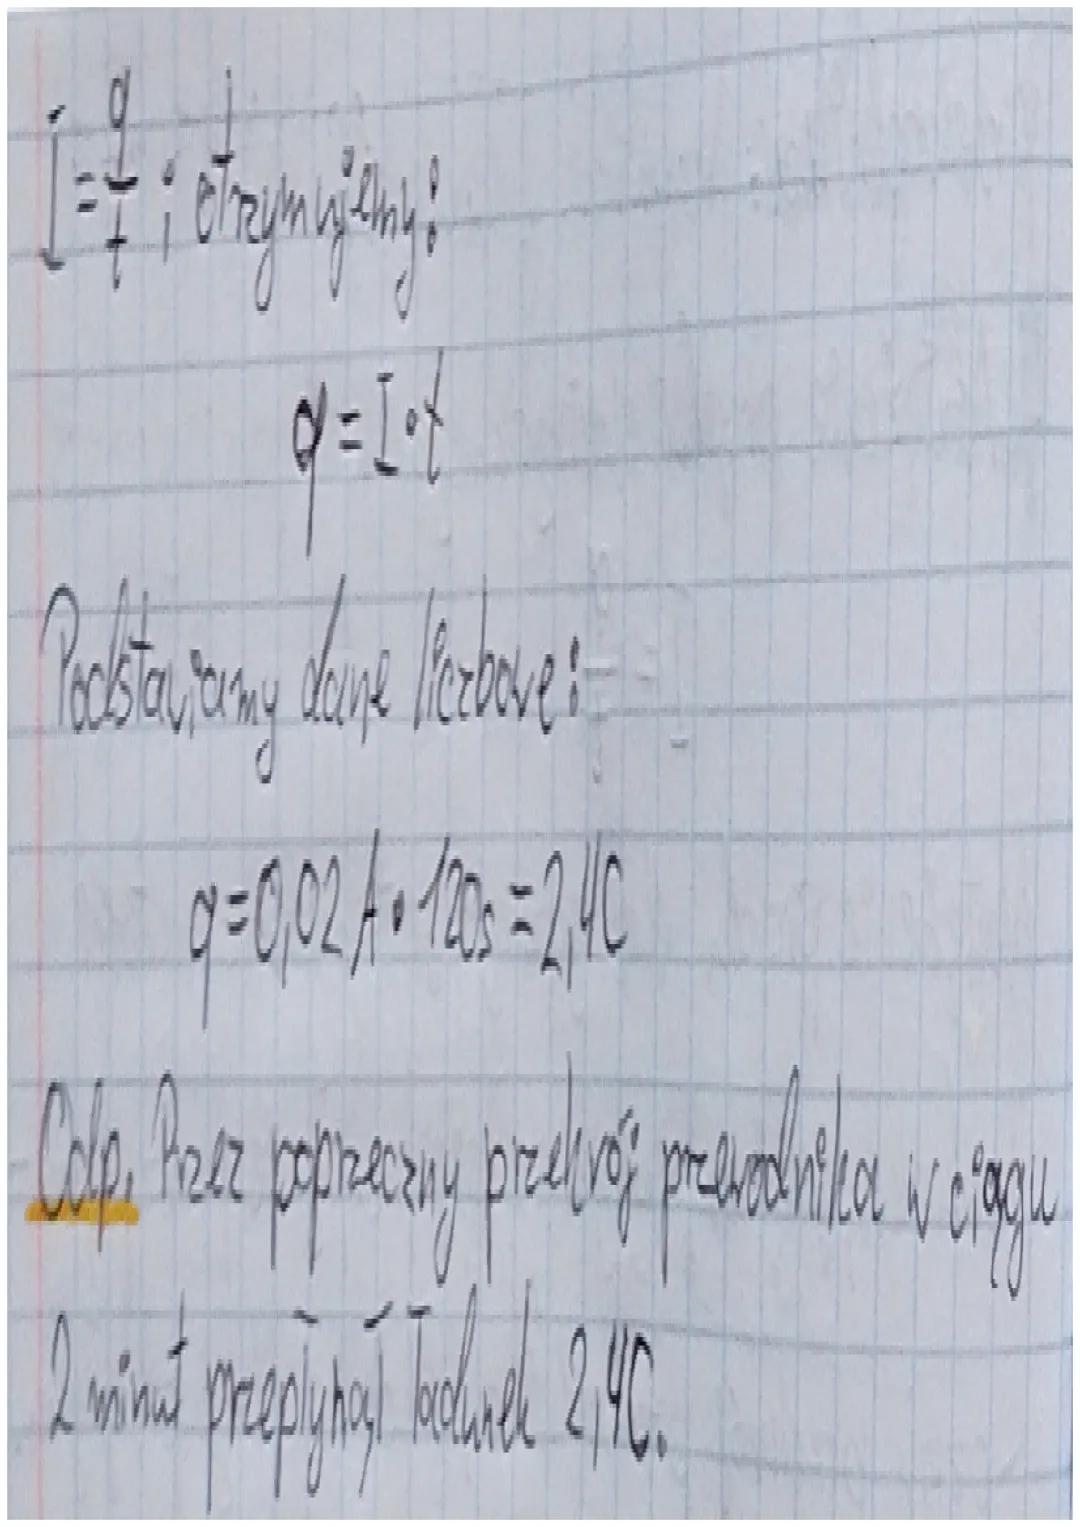 I = q/t ; otrzymujemy:
q = I · t
Podstawiamy dane liczbowe:
q = 0,02 A · 120s = 2,4C
Odp. Przez poprzeczny przekrój przewodnika w ciągu
2 minut przepłynął ładunek 2,4C.